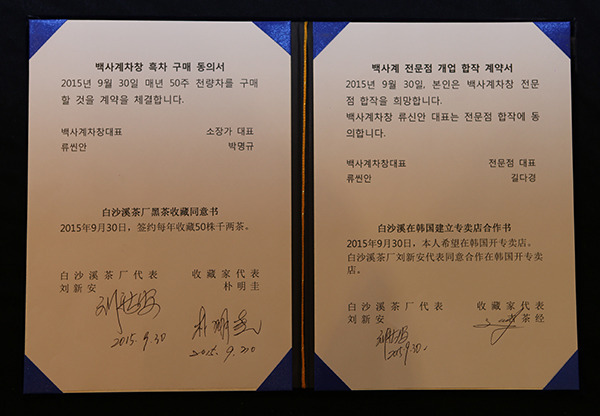 백사계차창 흑차 구매 동의서
2015년 9월 30일 매년 50주 천량차를 구매
할 것을 계약을 체결합니다.
백사계차창대표 소장가 대표
류씬안 박명규
白沙溪茶厂黑茶收藏同意书
2015年9月30日，签约每年收藏50株千两茶。
白沙溪茶厂代表 收藏家代表
刘新安 朴明圭
刘新安 朴明圭
2015.9.30 2015.9.30
백사계 전문점 개업 합작 계약서
2015년 9월 30일, 본인은 백사계차창 전문
점 합작을 희망합니다.
백사계차창 류신안 대표는 전문점 합작에 동
의합니다.
백사계차창대표 전문점 대표
류씬안 길다경
白沙溪在韩国建立专卖店合作书
2015年9月30日，本人希望在韩国开专卖店。
白沙溪茶厂刘新安代表同意合作在韩国开专卖
店。
白沙溪茶厂代表 收藏家代表
刘新安 茶经
刘新安
2015.9.30.